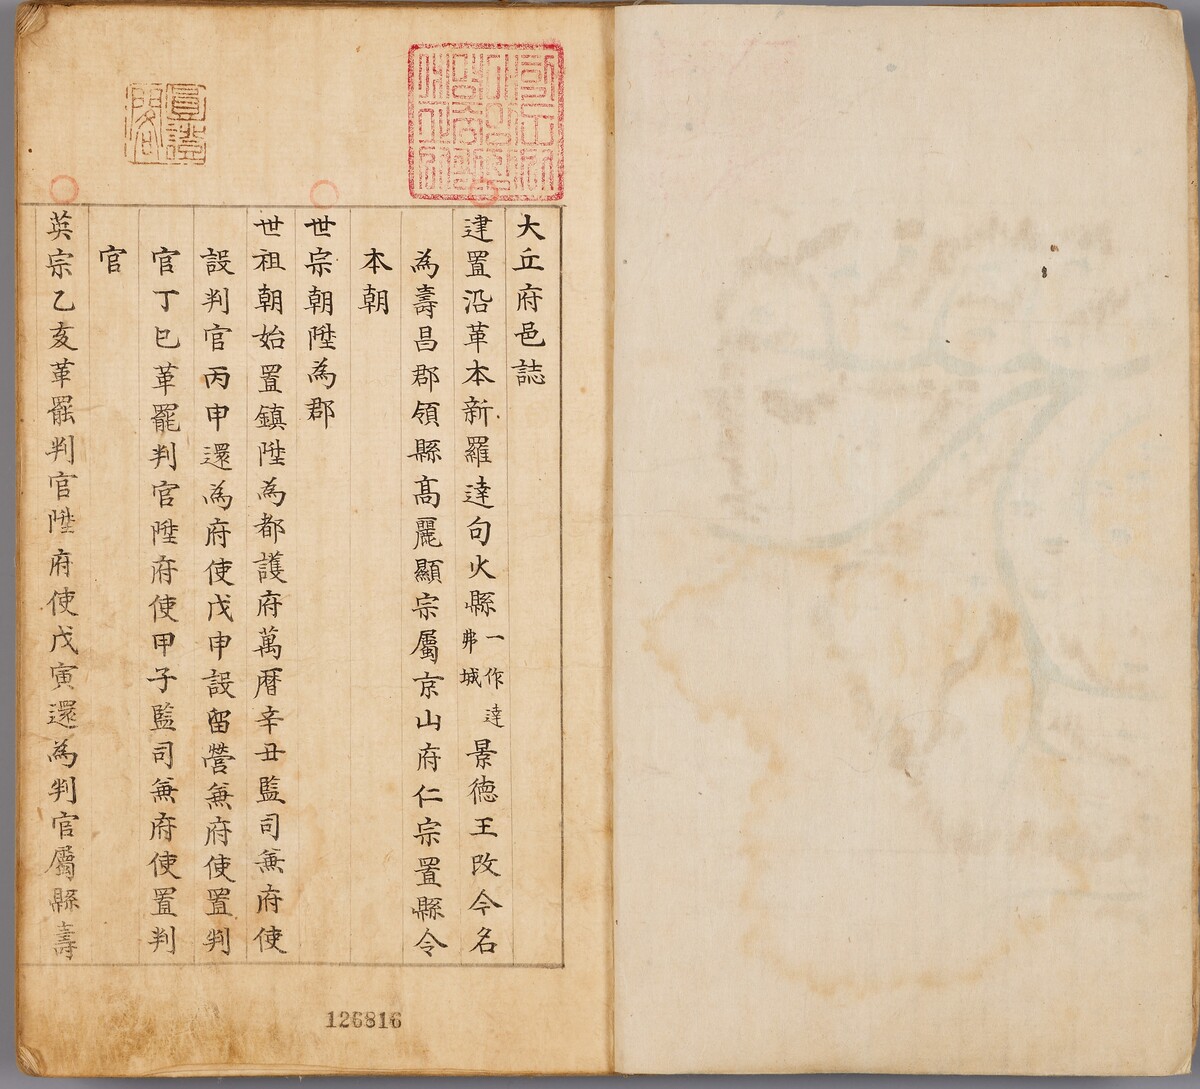 大丘府邑誌
建置沿革本新羅達句火縣一作達弗城景德王改今名
為壽昌郡領縣髙麗顯宗屬京山府仁宗置縣令
本朝
世宗朝陞為郡
世祖朝始置鎮陞為都護府萬曆辛丑監司兼府使
設判官丙申還為府使戊申設留營兼府使置判
官丁巳革罷判官陞府使甲子監司兼府使置判
官
英宗乙亥革罷判官陞府使戊寅還為判官屬縣壽
126816